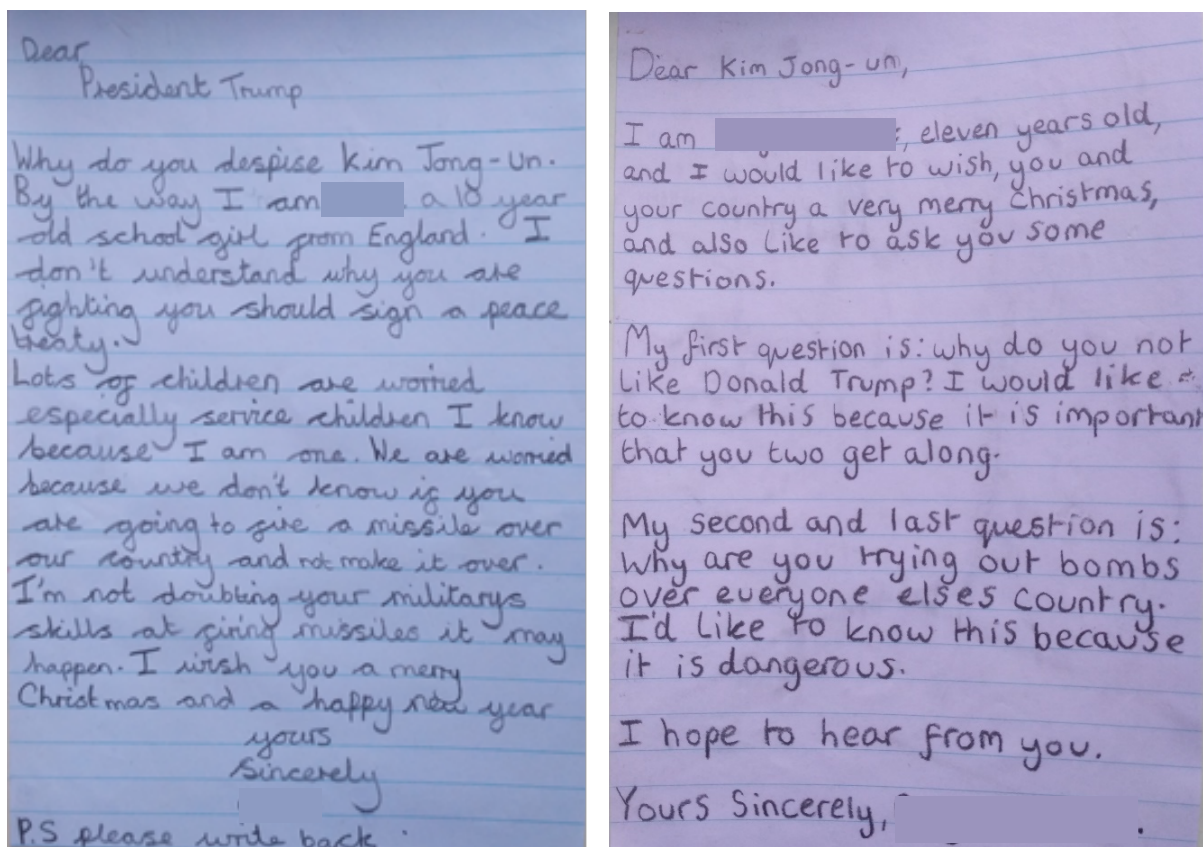 Dear
President Trump
Why do you despise Kim Jong-Un.
By the way I am a 10 year
old school girl from England. I
don't understand why you are
fighting you should sign a peace
treaty.
Lots of children are worried
especially service children I know
because I am one. We are worried
because we don't know if you
are going to fire a missile over
our country and not make it over.
I'm not doubting your militarys
skills at firing missiles it may
happen. I wish you a merry
Christmas and a happy new year
yours
Sincerely
P.S please write back.
Dear Kim Jong-un,
I am , eleven years old,
and I would like to wish, you and
your country a very merry Christmas,
and also like to ask you some
questions.
My first question is: why do you not
like Donald Trump? I would like
to know this because it is important
that you two get along.
My second and last question is:
Why are you trying out bombs
over everyone elses country.
I'd like to know this because
it is dangerous.
I hope to hear from you.
Yours Sincerely, .